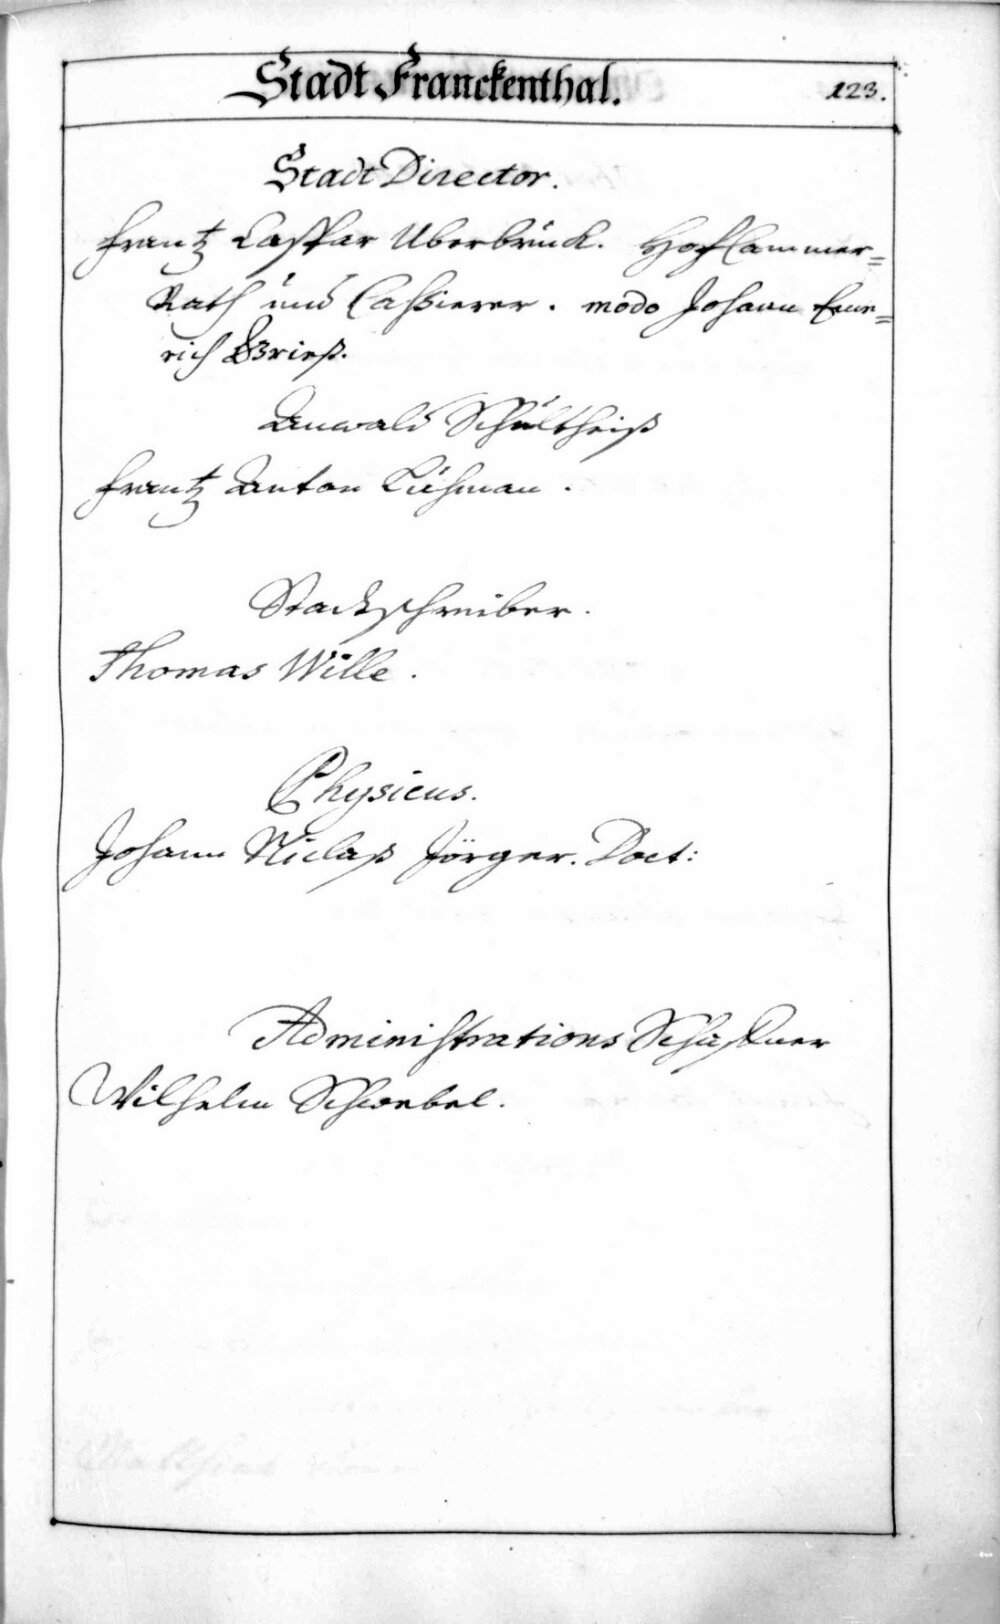 Stadt Franckenthal. 123.
Stadt Director.
Frantz Caspar Uberbrück. HofCammer=
Rath und Cassierer. modo Johann Eme=
rich Brieß.
Anwald Schultheiß
Frantz Anton Lühman.
Stadtschreiber.
Thomas Wille.
Physicus.
Johann Niclaß Jörger. Doct:
Administrations Schaffner
Wilhelm Schwebel.